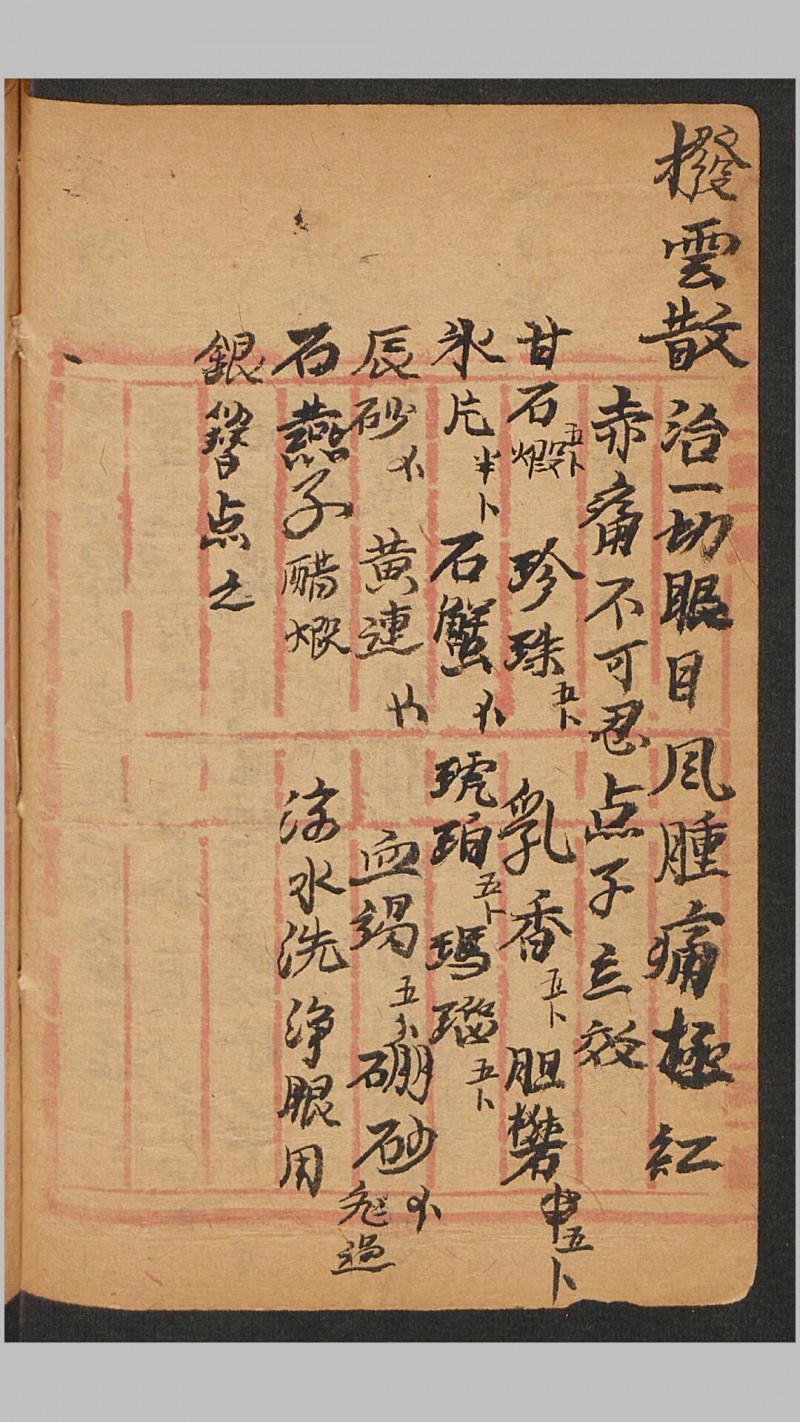 撥雲散 治一切眼目风腫痛極紅
赤痛不可忍点子立效
甘石煅五卜 珍珠五卜 乳香五卜 胆礬五卜
氷片半卜 石蟹 琥珀五卜 瑪瑙五卜
辰砂 黄連 血竭五 硼砂 過
石燕子醋煅 涼水洗浄眼用
銀簪点之